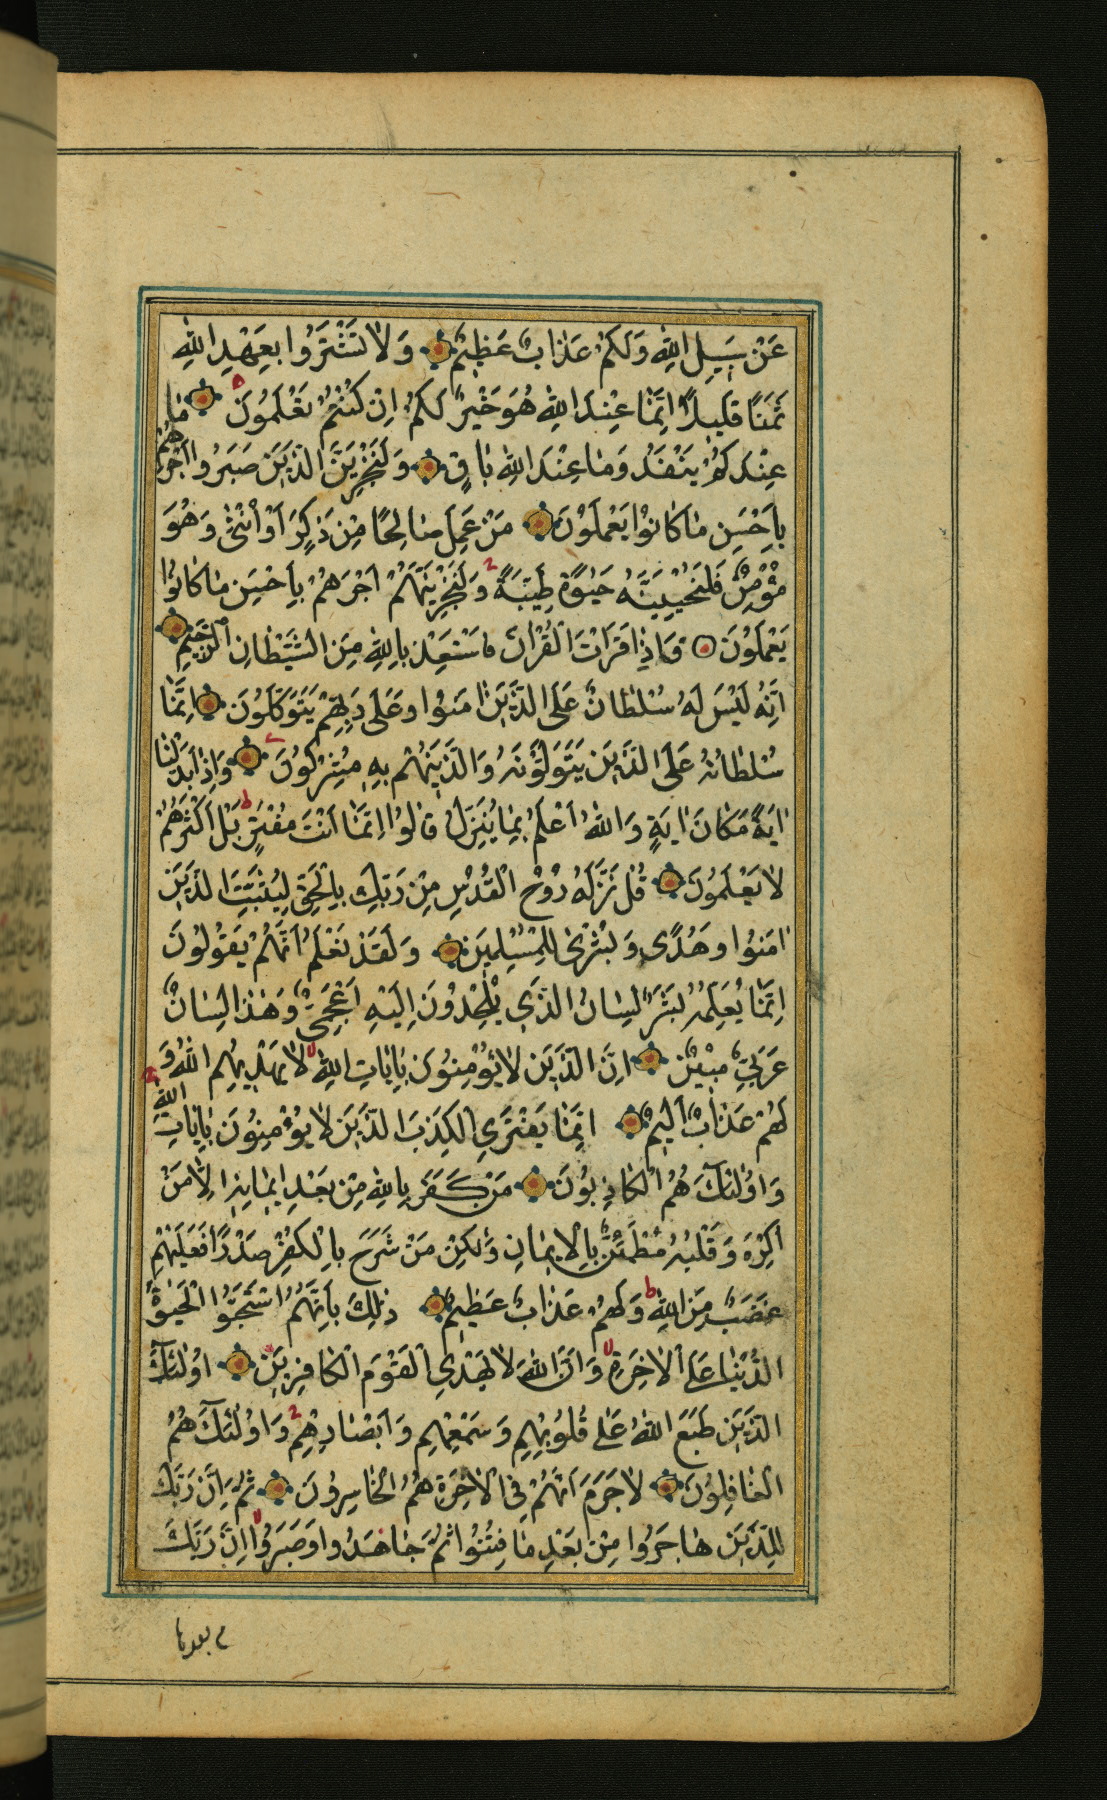 عَنْ سَبِيلِ اللهِ وَلَكُمْ عَذَابٌ عَظِيمٌ وَلَا تَشْتَرُوا بِعَهْدِ اللهِ
ثَمَنًا قَلِيلًا اِنَّمَا عِنْدَ اللهِ هُوَ خَيْرٌ لَكُمْ اِنْ كُنْتُمْ تَعْلَمُونَ مَا
عِنْدَكُمْ يَنْفَدُ وَمَا عِنْدَ اللهِ بَاقٍ وَلَنَجْزِيَنَّ الَّذِينَ صَبَرُوا اَجْرَهُمْ
بِاَحْسَنِ مَا كَانُوا يَعْمَلُونَ مَنْ عَمِلَ صَالِحًا مِنْ ذَكَرٍ اَوْ اُنْثٰى وَهُوَ
مُؤْمِنٌ فَلَنُحْيِيَنَّهُ حَيٰوةً طَيِّبَةً وَلَنَجْزِيَنَّهُمْ اَجْرَهُمْ بِاَحْسَنِ مَا كَانُوا
يَعْمَلُونَ فَاِذَا قَرَاْتَ الْقُرْاٰنَ فَاسْتَعِذْ بِاللهِ مِنَ الشَّيْطَانِ الرَّجِيمِ
اِنَّهُ لَيْسَ لَهُ سُلْطَانٌ عَلَى الَّذِينَ اٰمَنُوا وَعَلٰى رَبِّهِمْ يَتَوَكَّلُونَ اِنَّمَا
سُلْطَانُهُ عَلَى الَّذِينَ يَتَوَلَّوْنَهُ وَالَّذِينَ هُمْ بِهِ مُشْرِكُونَ وَاِذَا بَدَّلْنَا
اٰيَةً مَكَانَ اٰيَةٍ وَاللهُ اَعْلَمُ بِمَا يُنَزِّلُ قَالُوا اِنَّمَا اَنْتَ مُفْتَرٍ بَلْ اَكْثَرُهُمْ
لَا يَعْلَمُونَ قُلْ نَزَّلَهُ رُوحُ الْقُدُسِ مِنْ رَبِّكَ بِالْحَقِّ لِيُثَبِّتَ الَّذِينَ
اٰمَنُوا وَهُدًى وَبُشْرٰى لِلْمُسْلِمِينَ وَلَقَدْ نَعْلَمُ اَنَّهُمْ يَقُولُونَ
اِنَّمَا يُعَلِّمُهُ بَشَرٌ لِسَانُ الَّذِي يُلْحِدُونَ اِلَيْهِ اَعْجَمِيٌّ وَهٰذَا لِسَانٌ
عَرَبِيٌّ مُبِينٌ اِنَّ الَّذِينَ لَا يُؤْمِنُونَ بِاٰيَاتِ اللهِ لَا يَهْدِيهِمُ اللهُ وَ
لَهُمْ عَذَابٌ اَلِيمٌ اِنَّمَا يَفْتَرِي الْكَذِبَ الَّذِينَ لَا يُؤْمِنُونَ بِاٰيَاتِ اللهِ
وَاُولٰئِكَ هُمُ الْكَاذِبُونَ مَنْ كَفَرَ بِاللهِ مِنْ بَعْدِ اِيمَانِهِ اِلَّا مَنْ
اُكْرِهَ وَقَلْبُهُ مُطْمَئِنٌّ بِالْاِيمَانِ وَلٰكِنْ مَنْ شَرَحَ بِالْكُفْرِ صَدْرًا فَعَلَيْهِمْ
غَضَبٌ مِنَ اللهِ وَلَهُمْ عَذَابٌ عَظِيمٌ ذٰلِكَ بِاَنَّهُمُ اسْتَحَبُّوا الْحَيٰوةَ
الدُّنْيَا عَلَى الْاٰخِرَةِ وَاَنَّ اللهَ لَا يَهْدِي الْقَوْمَ الْكَافِرِينَ اُولٰئِكَ
الَّذِينَ طَبَعَ اللهُ عَلٰى قُلُوبِهِمْ وَسَمْعِهِمْ وَاَبْصَارِهِمْ وَاُولٰئِكَ هُمُ
الْغَافِلُونَ لَا جَرَمَ اَنَّهُمْ فِي الْاٰخِرَةِ هُمُ الْخَاسِرُونَ ثُمَّ اِنَّ رَبَّكَ
لِلَّذِينَ هَاجَرُوا مِنْ بَعْدِ مَا فُتِنُوا ثُمَّ جَاهَدُوا وَصَبَرُوا اِنَّ رَبَّكَ
بعدها